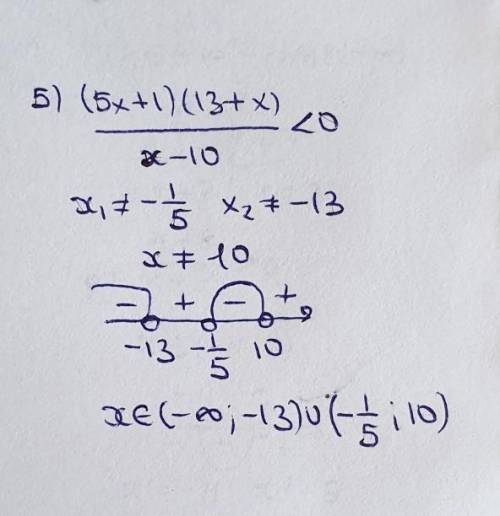 5) (5x+1)(13+x)
<0
x-10
x₁≠-1/5 x₂≠-13
x≠10
- + - +
-13 -1/5 10
x∈(-∞;-13)∪(-1/5;10)